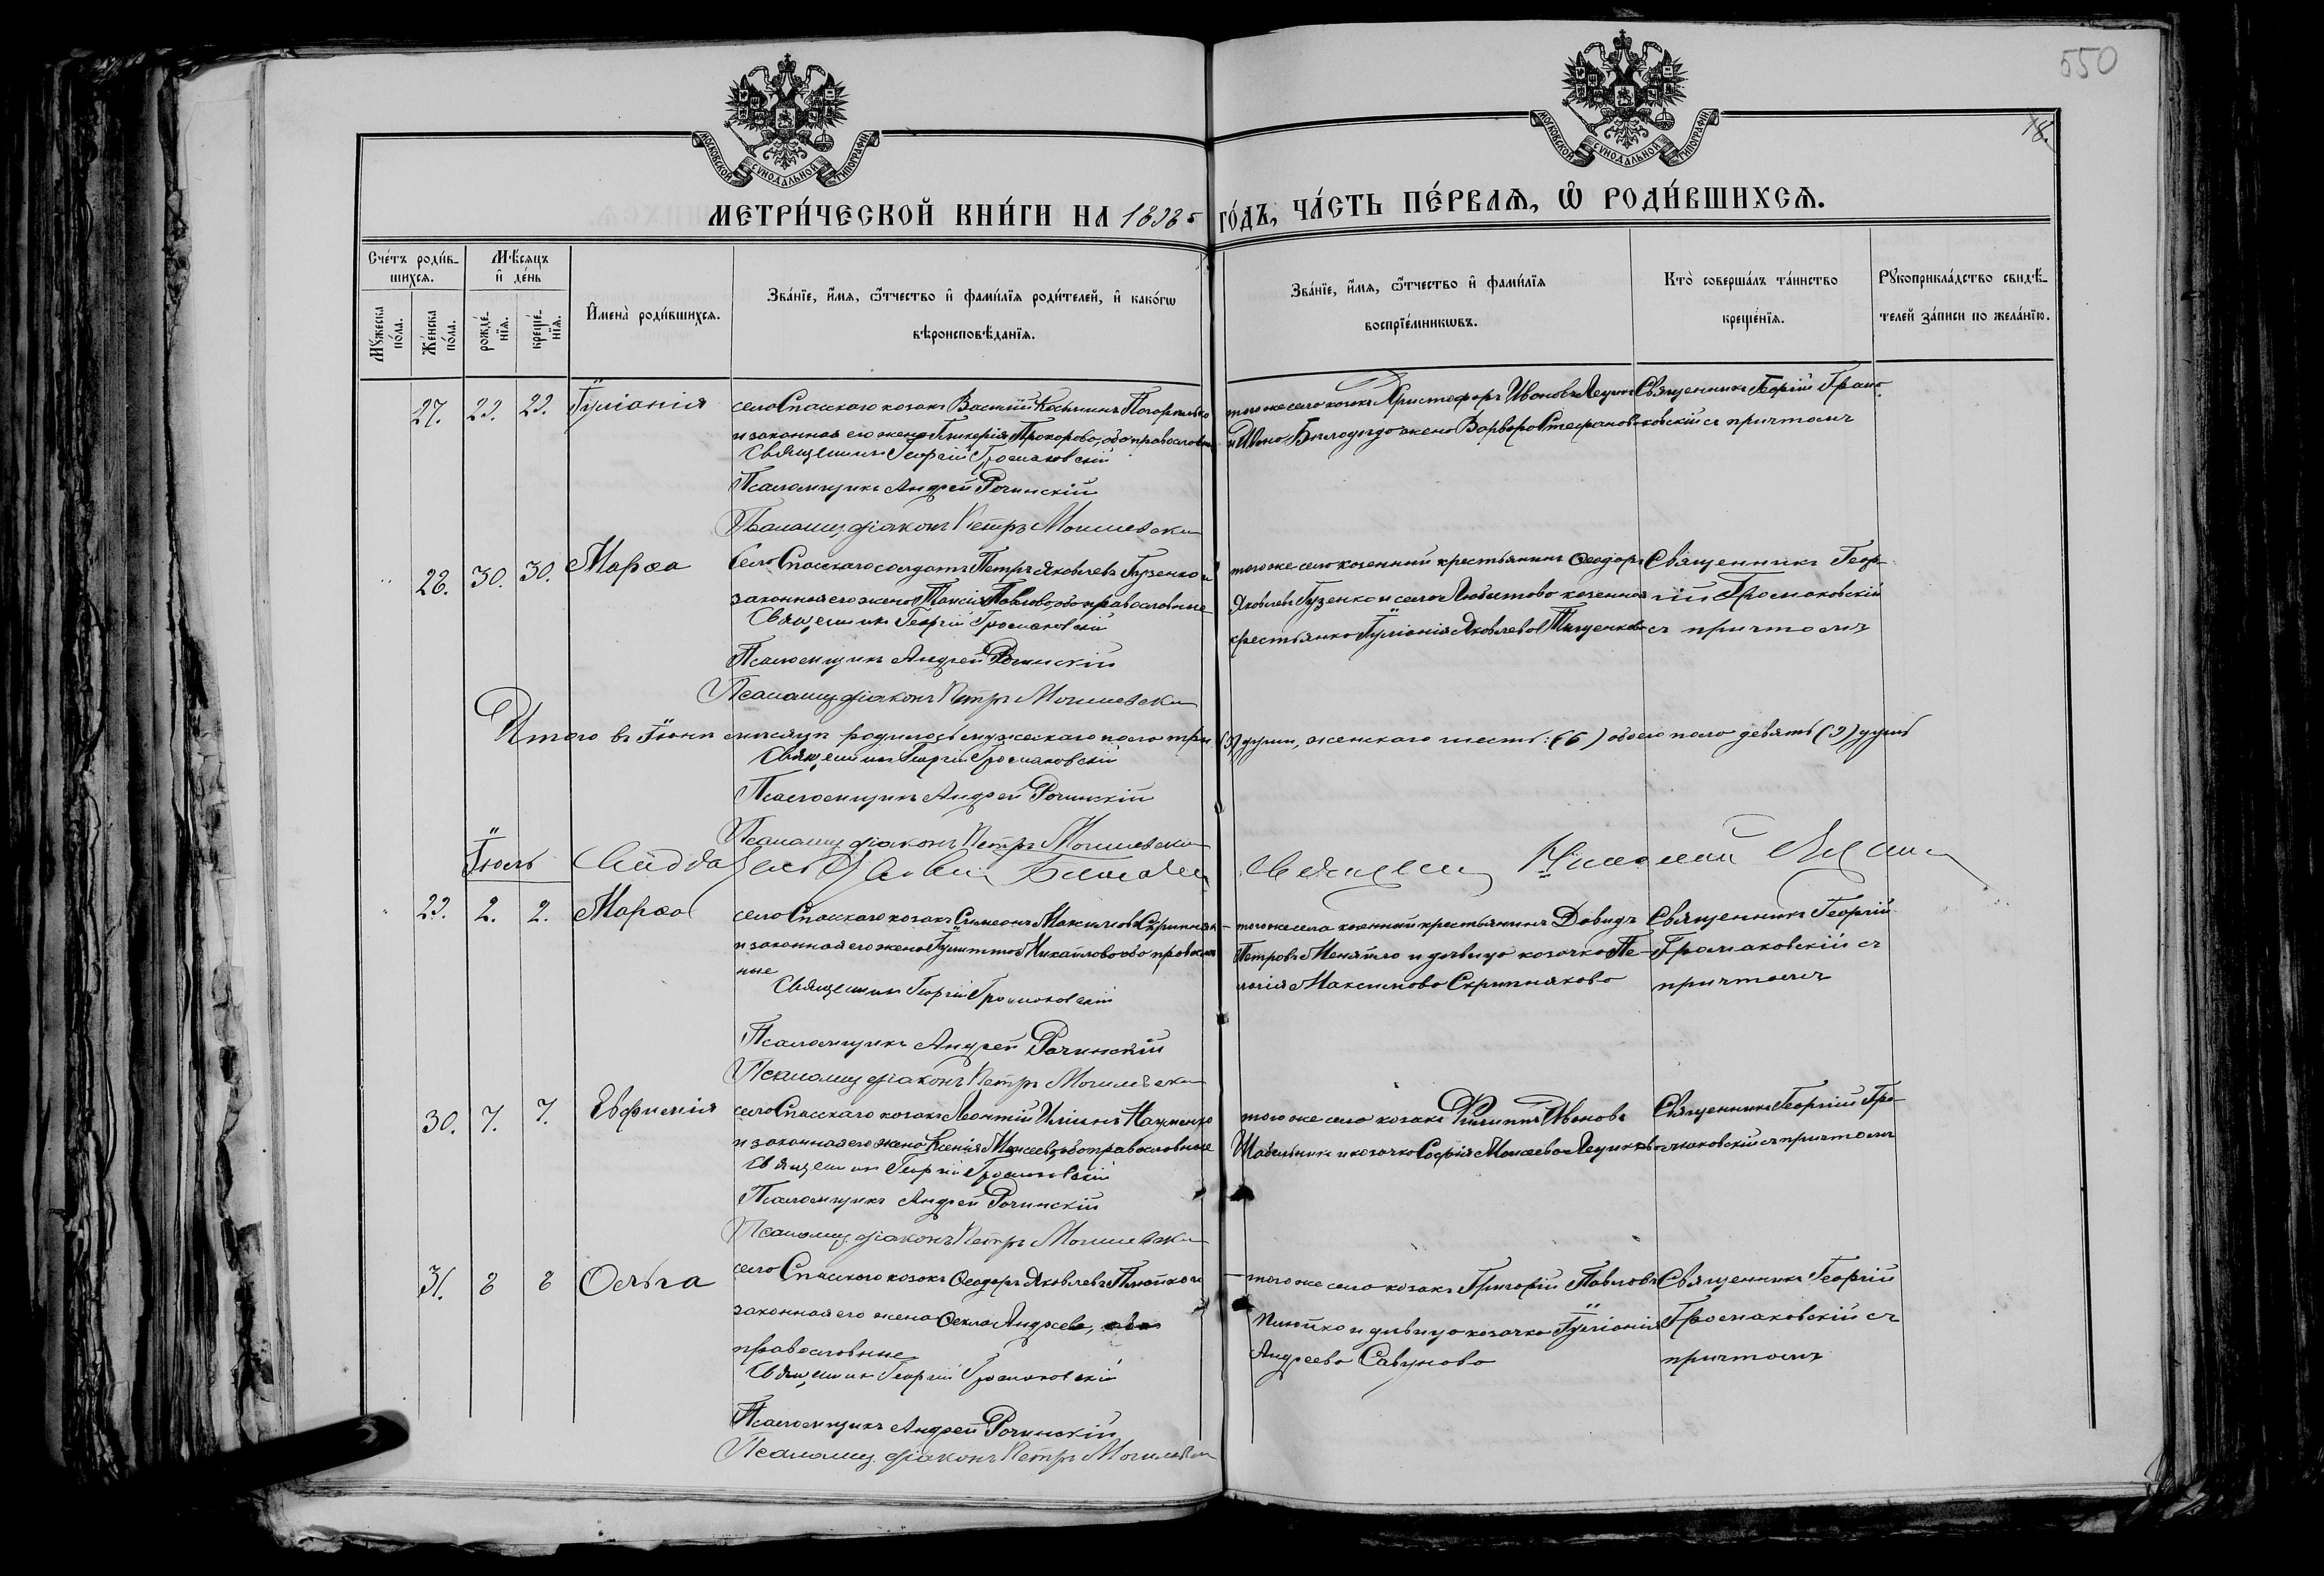 550
18.
МОСКОВСКОЙ СѴНОДАЛЬНОЙ ТИПОГРАФІИ
МОСКОВСКОЙ СѴНОДАЛЬНОЙ ТИПОГРАФІИ
МЕТРИ́ЧЕСКОЙ КНИ́ГИ НА го́дъ, ЧА́СТЬ ПЕ́РВАѦ, Ѿ РОДИ́ВШИХСѦ.
Сче́тъ роди́в-
шихсѧ.
Мѹ́жеска по́ла.
Же́нска по́ла.
Мѣ́сѧцъ
и҆ де́нь
рожде́-
нїѧ.
креще́-
нїѧ.
И҆мена̀ роди́вшихсѧ.
Зва́нїе, и҆́мѧ, ѻ҆́тчество и҆ фами́лїѧ роди́телей, и҆ како́гѡ
вѣроисповѣ́данїѧ.
Зва́нїе, и҆́мѧ, ѻ҆́тчество и҆ фами́лїѧ
воспрїе́мникѡвъ.
Кто̀ соверша́лъ та́инство
креще́нїѧ.
Рѹкоприкла́дство свидѣ́-
телей за́писи по жела́нїю.
27. 29. 29. Іуліанія
села Спасскаго козакъ Василій
и законная его жена Гликерія Прохорова, оба православные
Священникъ Георгій Громаковскій
Псаломщикъ Андрей Рочинскій
Псаломщ. діаконъ Петръ Могилевски
того же села козакъ Христофоръ Ивановъ Лещинъ
и Ивана жена Варвара Стефанова
Священникъ Георгій Грома-
ковскій съ причтомъ
28. 30. 30. Марѳа
Села Спасскаго солдатъ Петръ Яковлевъ Гузенко и
законная его жена Павлова, оба православные
Священникъ Георгій Громаковскій
Псаломщикъ Андрей Рочинскій
Псаломщ. діаконъ Петръ Могилевски
того же села казенный крестьянинъ Ѳеодоръ
Яковлевъ Гузенко и села Любитова казенная
крестьянка Іуліанія Яковлева Тищенкова
Священникъ Геор-
гій Громаковскій
съ причтомъ
Итого въ Іюнѣ мѣсяцѣ родилось мужескаго пола три (3) души, женскаго шесть: (6) обоего пола девять (9) душъ
Священникъ Георгій Громаковскій
Псаломщикъ Андрей Рочинскій
Псаломщ. діаконъ Петръ Могилевски
Іюль
29. 2. 2. Марѳа
села Спасскаго козакъ Симеонъ Максимовъ Скрипнякъ
и законная его жена Іулитта Михайлова оба православ
ные
Священникъ Георгій Громаковскій
Псаломщикъ Андрей Рочинскій
Псаломщ. діаконъ Петръ Могилевски
того же села казенный крестьянинъ Давидъ
Петровъ Меняйло и дѣвица козачка Пе-
лагія Максимова Скрипнякова
Священникъ Георгій
Громаковскій съ
причтомъ
30. 7. 7. Евфимія
села Спасскаго козакъ Леонтій Ильинъ
и законная его жена Ксенія Моисеева, оба православные
Священникъ Георгій Громаковскій
Псаломщикъ Андрей Рочинскій
Псаломщ. діаконъ Петръ Могилевски
того же села козакъ Филиппъ Ивановъ
Шабельникъ и козачка Софія Моисеева
Священникъ Георгій Гро-
маковскій съ причтомъ
31. 8 8 Ольга
села Спасскаго козакъ Ѳеодоръ Яковлевъ Плюйко и
законная его жена Ѳекла Андреева, оба
православные
Священникъ Георгій Громаковскій
Псаломщикъ Андрей Рочинскій
Псаломщ. діаконъ Петръ Могилевски
того же села козакъ Григорій Павловъ
Плюйко и дѣвица козачка Іуліанія
Андреева Савунова
Священникъ Георгій
Громаковскій съ
причтомъ